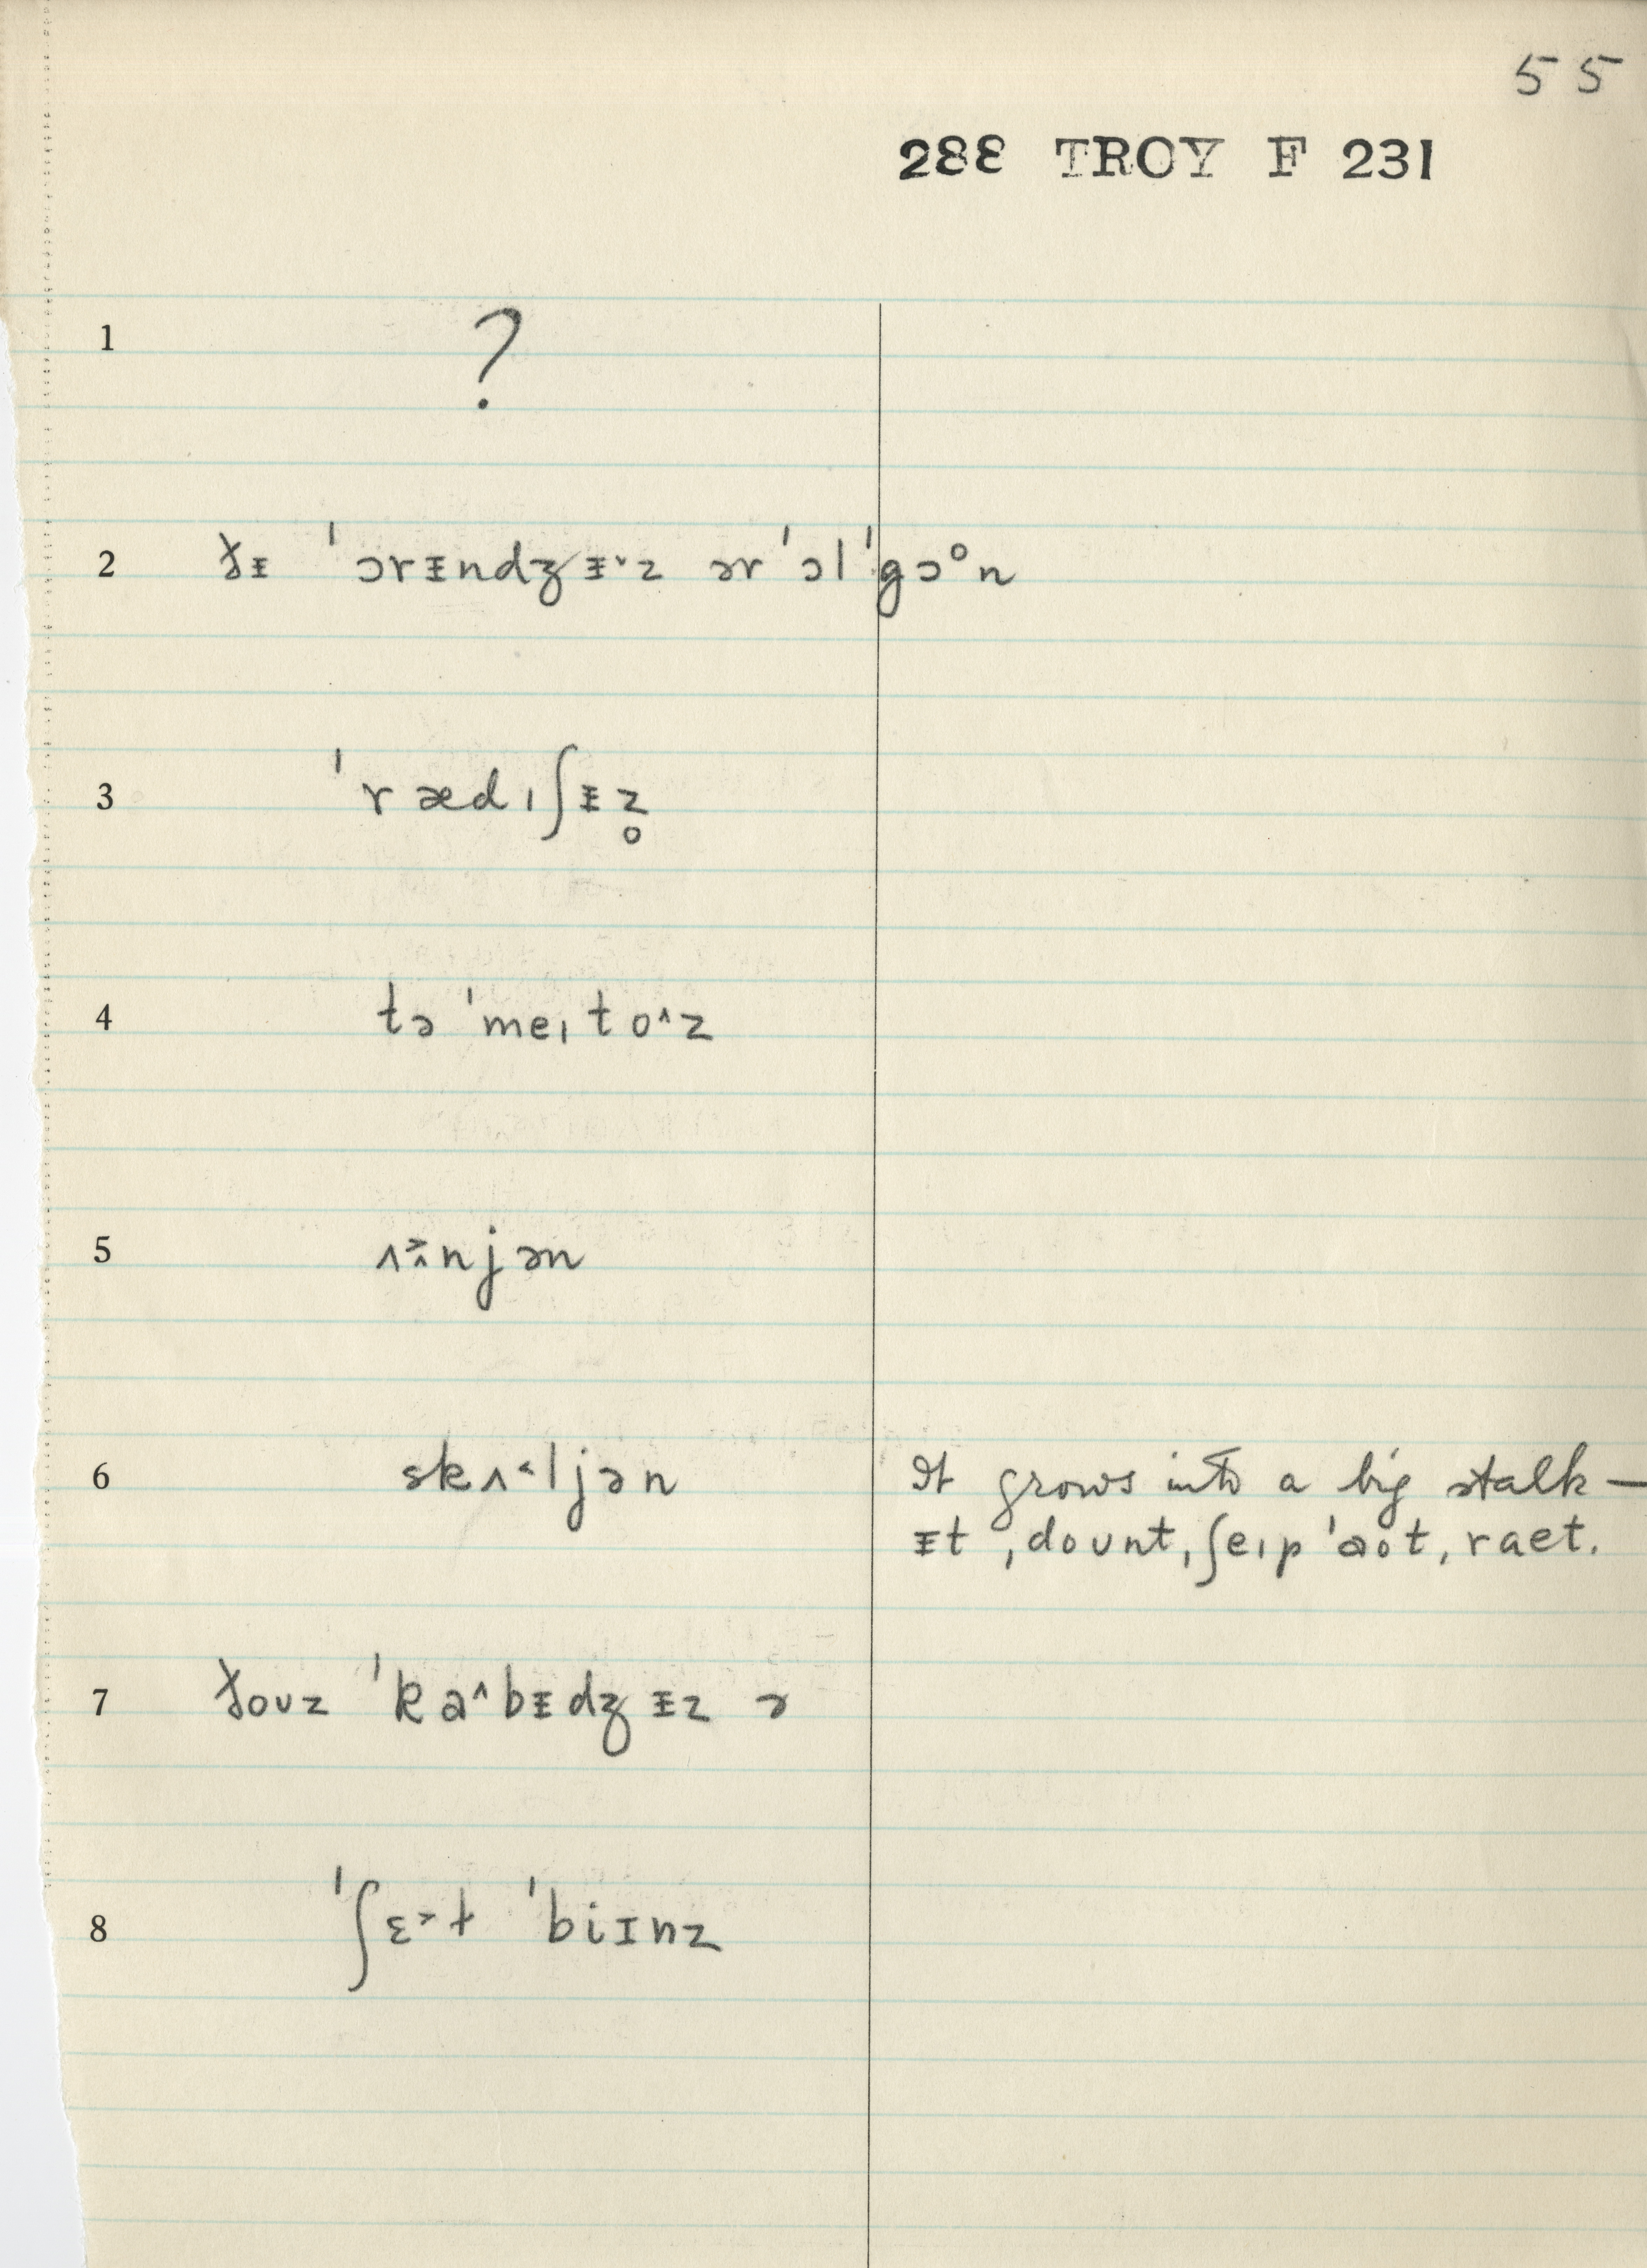 55
288 TROY F 231
1 ?
2 ðᵻ ˈɔrᵻndʒᵻ˅z ər ˈɔl ˈgɔᵒn
3 ˈrædɪʃᵻz̥
4 tə ˈmeɪto^z
5 njən
6 skʌ˂ljən It grows into a big stalk —
ᵻt ˌdoʊnt ˌʃeɪp ˈaʊt ˌraet.
7 ðoʊz ˈka^bᵻdʒᵻz ɚ
8 ˈʃɛ˃t ˈbiɪnz